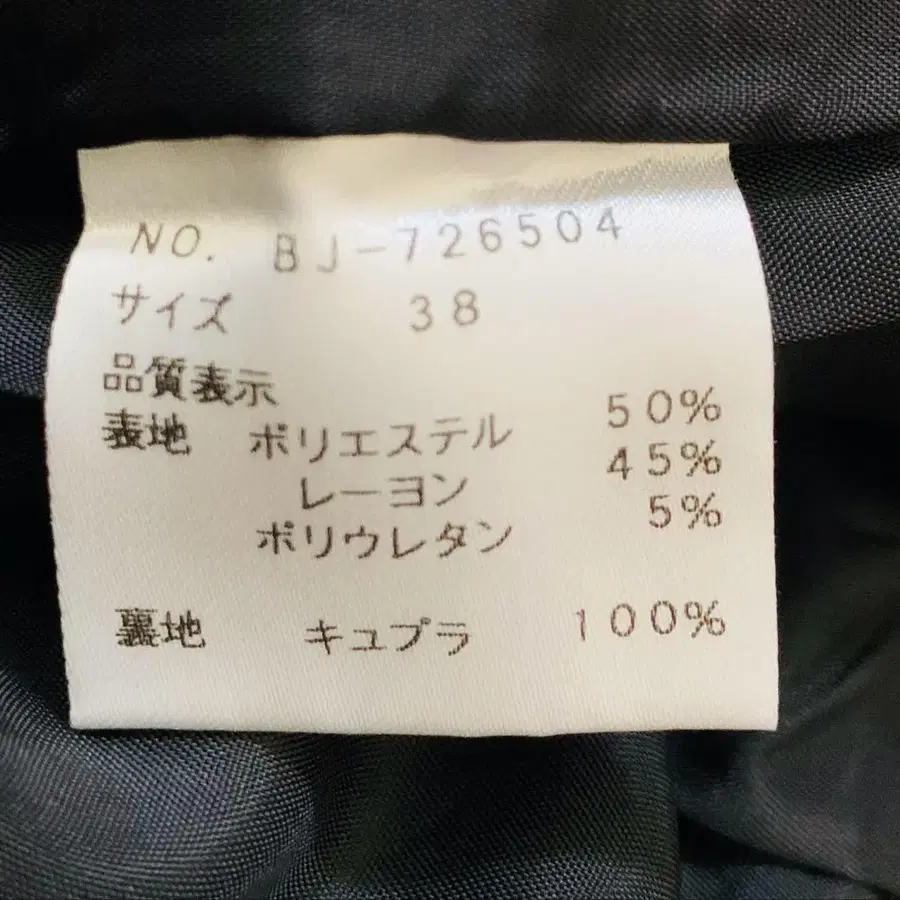 NO. BJ-726504
サイズ 38
品質表示
表地 ポリエステル 50%
レーヨン 45%
ポリウレタン 5%
裏地 キュプラ 100%